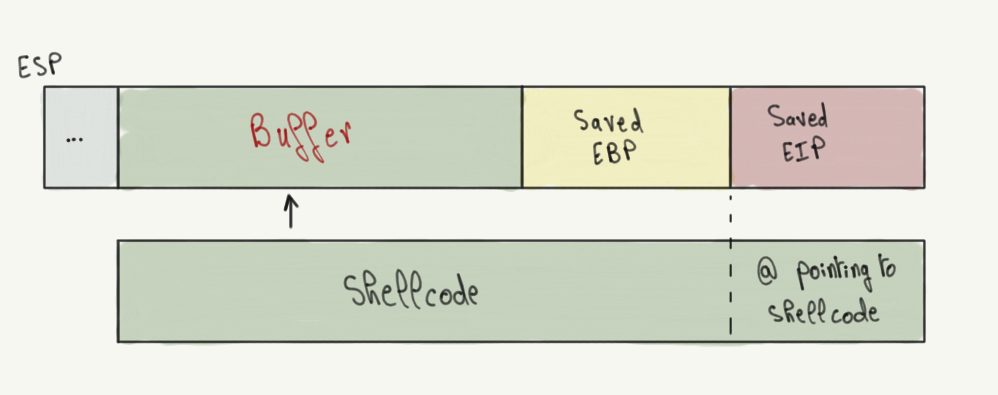 ESP
...
Buffer
Saved
EBP
Saved
EIP
Shellcode
@ pointing to
shellcode